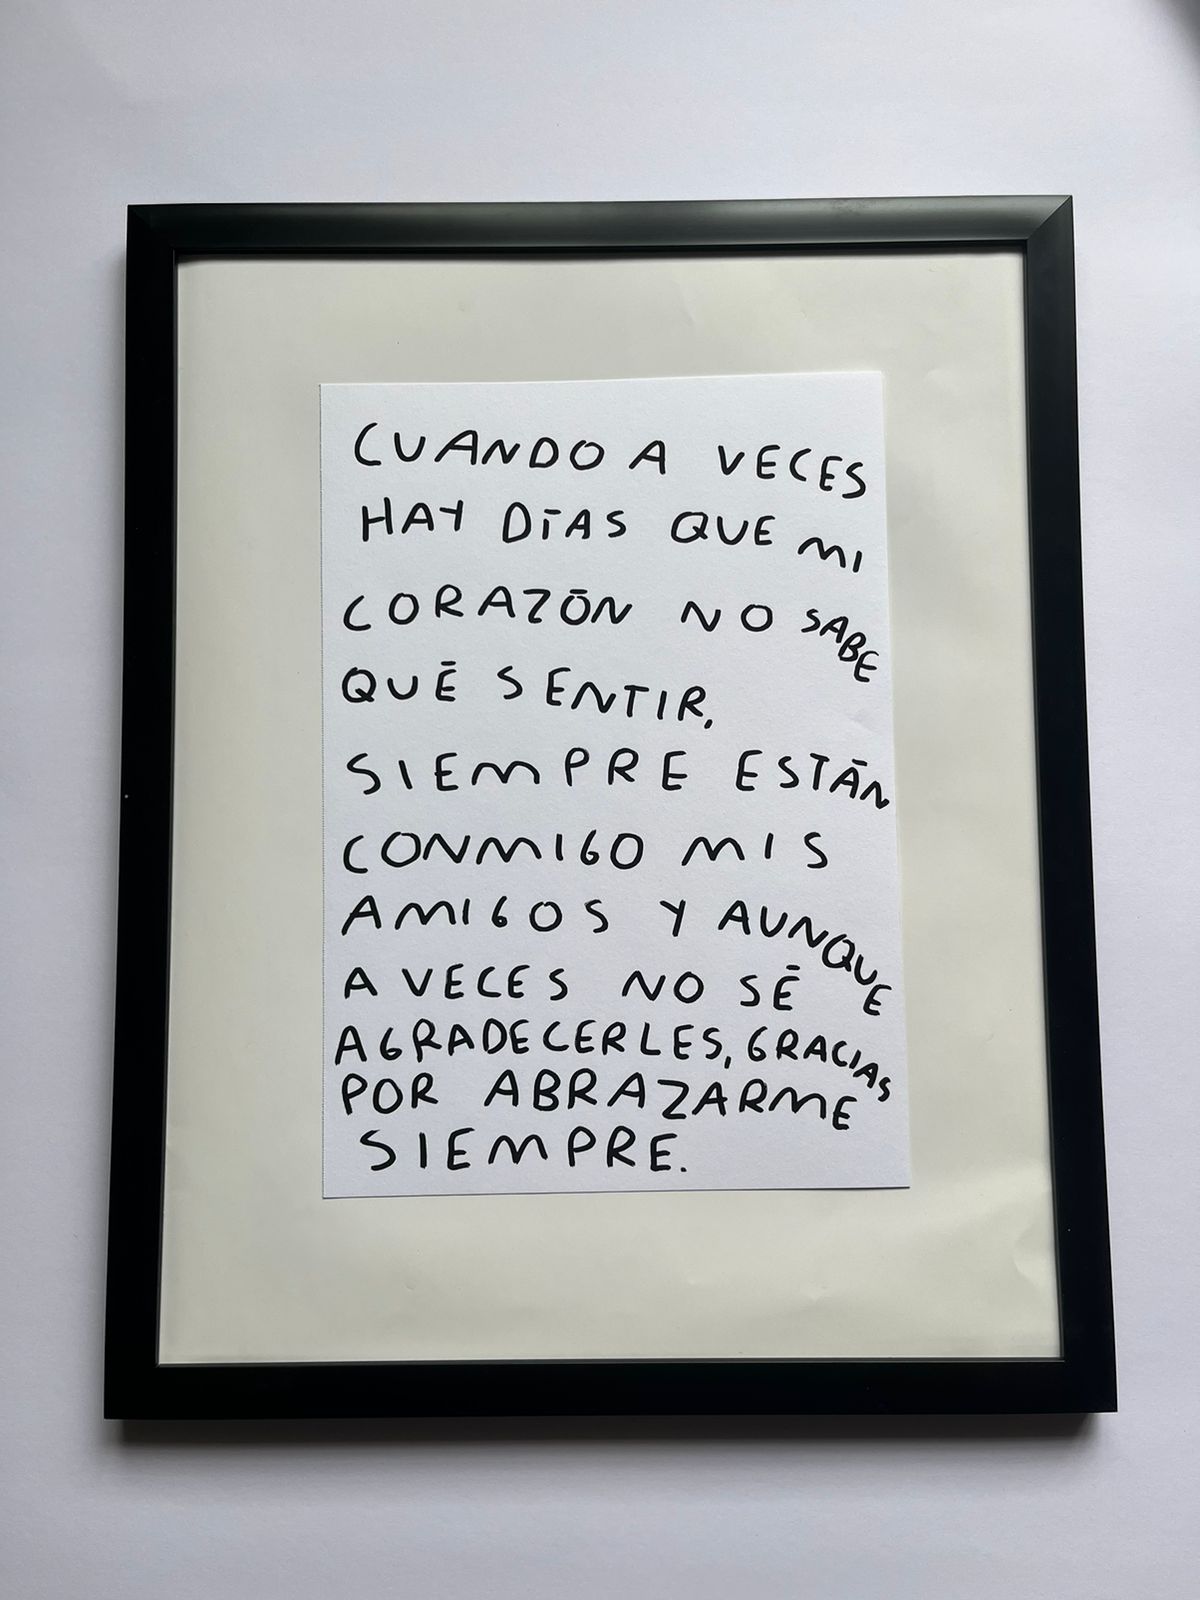 CUANDO A VECES
HAY DÍAS QUE MI
CORAZÓN NO SABE
QUÉ SENTIR,
SIEMPRE ESTÁN
CONMIGO MIS
AMIGOS Y AUNQUE
A VECES NO SÉ
AGRADECERLES, GRACIAS
POR ABRAZARME
SIEMPRE.